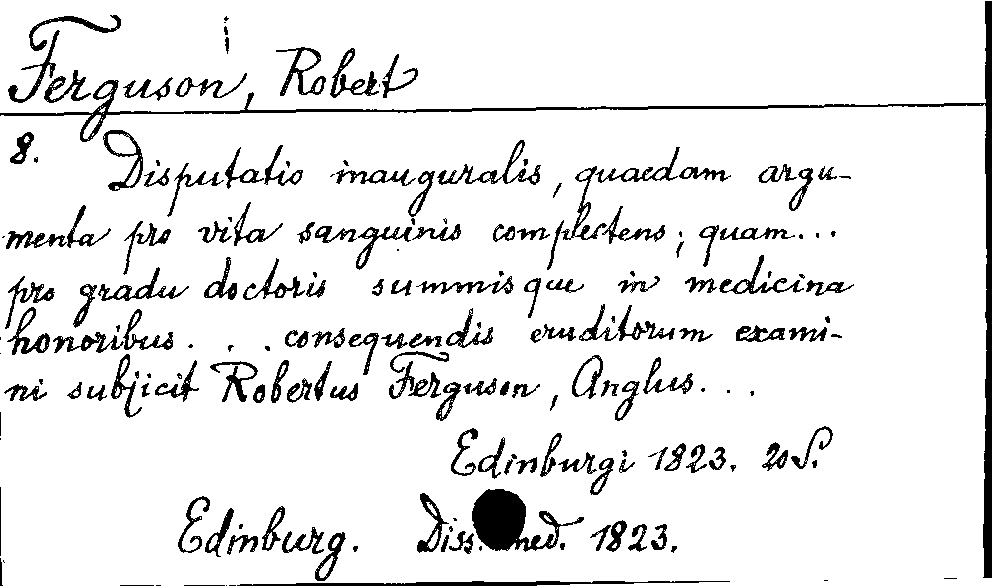 Ferguson, Robert
8. Disputatio inauguralis, quaedam argu-
menta pro vita sanguinis complectens; quam...
pro gradu doctoris summisque in medicina
honoribus... consequendis eruditorum exami-
ni subjicit Robertus Ferguson, Anglus...
Edinburgi 1823. 20 S.
Edinburg. Diss. med. 1823.